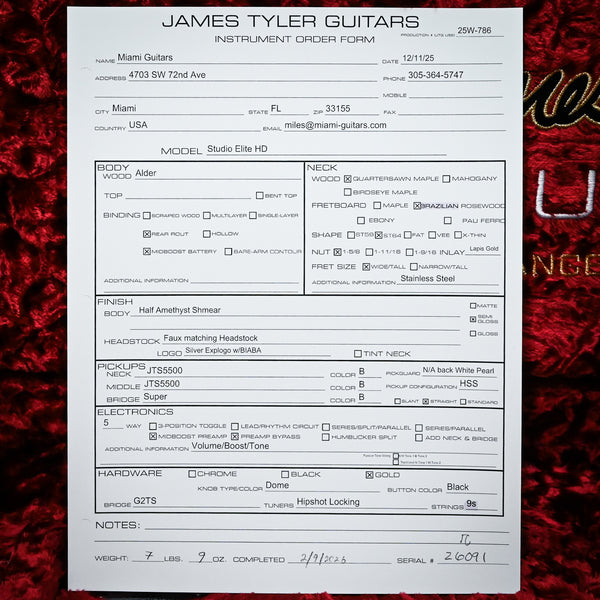 JAMES TYLER GUITARS
INSTRUMENT ORDER FORM
25W-786
NAME Miami Guitars DATE 12/11/25
ADDRESS 4703 SW 72nd Ave PHONE 305-364-5747
MOBILE
CITY Miami STATE FL ZIP 33155 FAX
COUNTRY USA EMAIL miles@miami-guitars.com
MODEL Studio Elite HD
BODY
WOOD Alder
TOP BENT TOP
BINDING SCRAPED WOOD MULTILAYER SINGLE-LAYER
REAR ROUT HOLLOW
MIDBOOST BATTERY BARE-ARM CONTOUR
ADDITIONAL INFORMATION
NECK
WOOD QUARTERSAWN MAPLE MAHOGANY
BIRDSEYE MAPLE
FRETBOARD MAPLE BRAZILIAN ROSEWOOD
EBONY PAU FERRO
SHAPE ST59 ST64 FAT VEE X-THIN
NUT 1-5/8 1-11/16 1-9/16 INLAY Lapis Gold
FRET SIZE WIDE/TALL NARROW/TALL
ADDITIONAL INFORMATION Stainless Steel
FINISH
BODY Half Amethyst Shmear
MATTE
SEMI GLOSS
GLOSS
HEADSTOCK Faux matching Headstock
LOGO Silver Explogo w/BIABA TINT NECK
PICKUPS
NECK JTS5500 COLOR B PICKGUARD N/A back White Pearl
MIDDLE JTS5500 COLOR B PICKUP CONFIGURATION HSS
BRIDGE Super COLOR B SLANT STRAIGHT STANDARD
ELECTRONICS
5 WAY 3-POSITION TOGGLE LEAD/RHYTHM CIRCUIT SERIES/SPLIT/PARALLEL SERIES/PARALLEL
MIDBOOST PREAMP PREAMP BYPASS HUMBUCKER SPLIT ADD NECK & BRIDGE
ADDITIONAL INFORMATION Volume/Boost/Tone
HARDWARE CHROME BLACK GOLD
KNOB TYPE/COLOR Dome BUTTON COLOR Black
BRIDGE G2TS TUNERS Hipshot Locking STRINGS 9s
NOTES:
WEIGHT: 7 LBS. 9 OZ. COMPLETED 2/9/2026 SERIAL # 26091
U